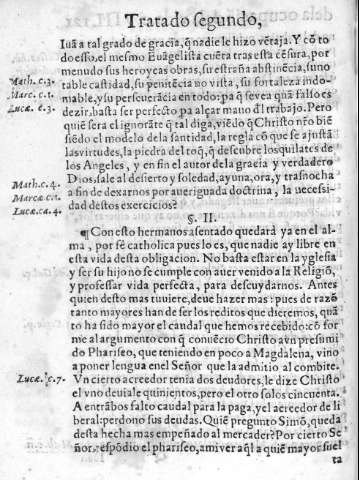 Tratado segundo,
Iuã a tal grado de gracia, q̃ nadie le hizo vẽtaja. Y cõ to
do esso, el mesmo Euãgelista cuẽta tras esta cẽsura, por
menudo sus heroycas obras, su estraña abstinẽcia, su no
Math.c.3.
table castidad, su penitẽcia no vista, su fortaleza indo-
Marc. c.1.
miable, y su perseuerãcia en todo: paq̃ sevea quã falso es
Lucæ. c.3.
dezir. basta ser perfecto pa alçar mano dl̃ trabajo. Pero
quiẽ sera el ignorãte q̃ tal diga, viẽdo q̃ Christo nr̃o biẽ
siẽdo el modelo dela santidad, la regla cõ que se ajustã
las virtudes, la piedra del toq̃, q̃ descubre los quilates de
los Angeles, y en fin el autor dela gracia y verdadero
Dios, sale al desierto y soledad, ayuna, ora, y trasnocha
Math.c. 4.
a fin de dexarnos por aueriguada doctrina, la necessi-
Marcæ c.1.
dad destos exercicios?
Lucæ.ca. 4.
§. II.
¶ Con esto hermanos asentado quedarà ya en el al-
ma, por fè catholica pues lo es, que nadie ay libre en
esta vida desta obligacion. No basta estar en la yglesia
y ser su hijo no se cumple con auer venido a la Religiõ,
y professar vida perfecta, para descuydarnos. Antes
quien desto mas tuuiere, deue hazer mas: pues de razõ
tanto mayores han de ser los reditos que dieremos, quã
to ha sido mayor el caudal que hemos recebido: cõ for
me al argumento con q̃ conuẽcio Christo a vn presumi
do Phariseo, que teniendo en poco a Magdalena, vino
a poner lengua en el Señor que la admitio al combite.
Lucæ. c.7.
Vn cierto acreedor tenia dos deudores, le dize Christo
el vno deuiale quinientos, pero el otro solos cincuenta.
A entrãbos falto caudal para la paga, y el acreedor de li
beral: perdono sus deudas. Quiẽ pregunto Simõ, queda
desta hecha mas empeñado al mercader? Por cierto Se
ñor, respõdio el phariseo, a mi ver aq̃l a quiẽ mayor suel
ta